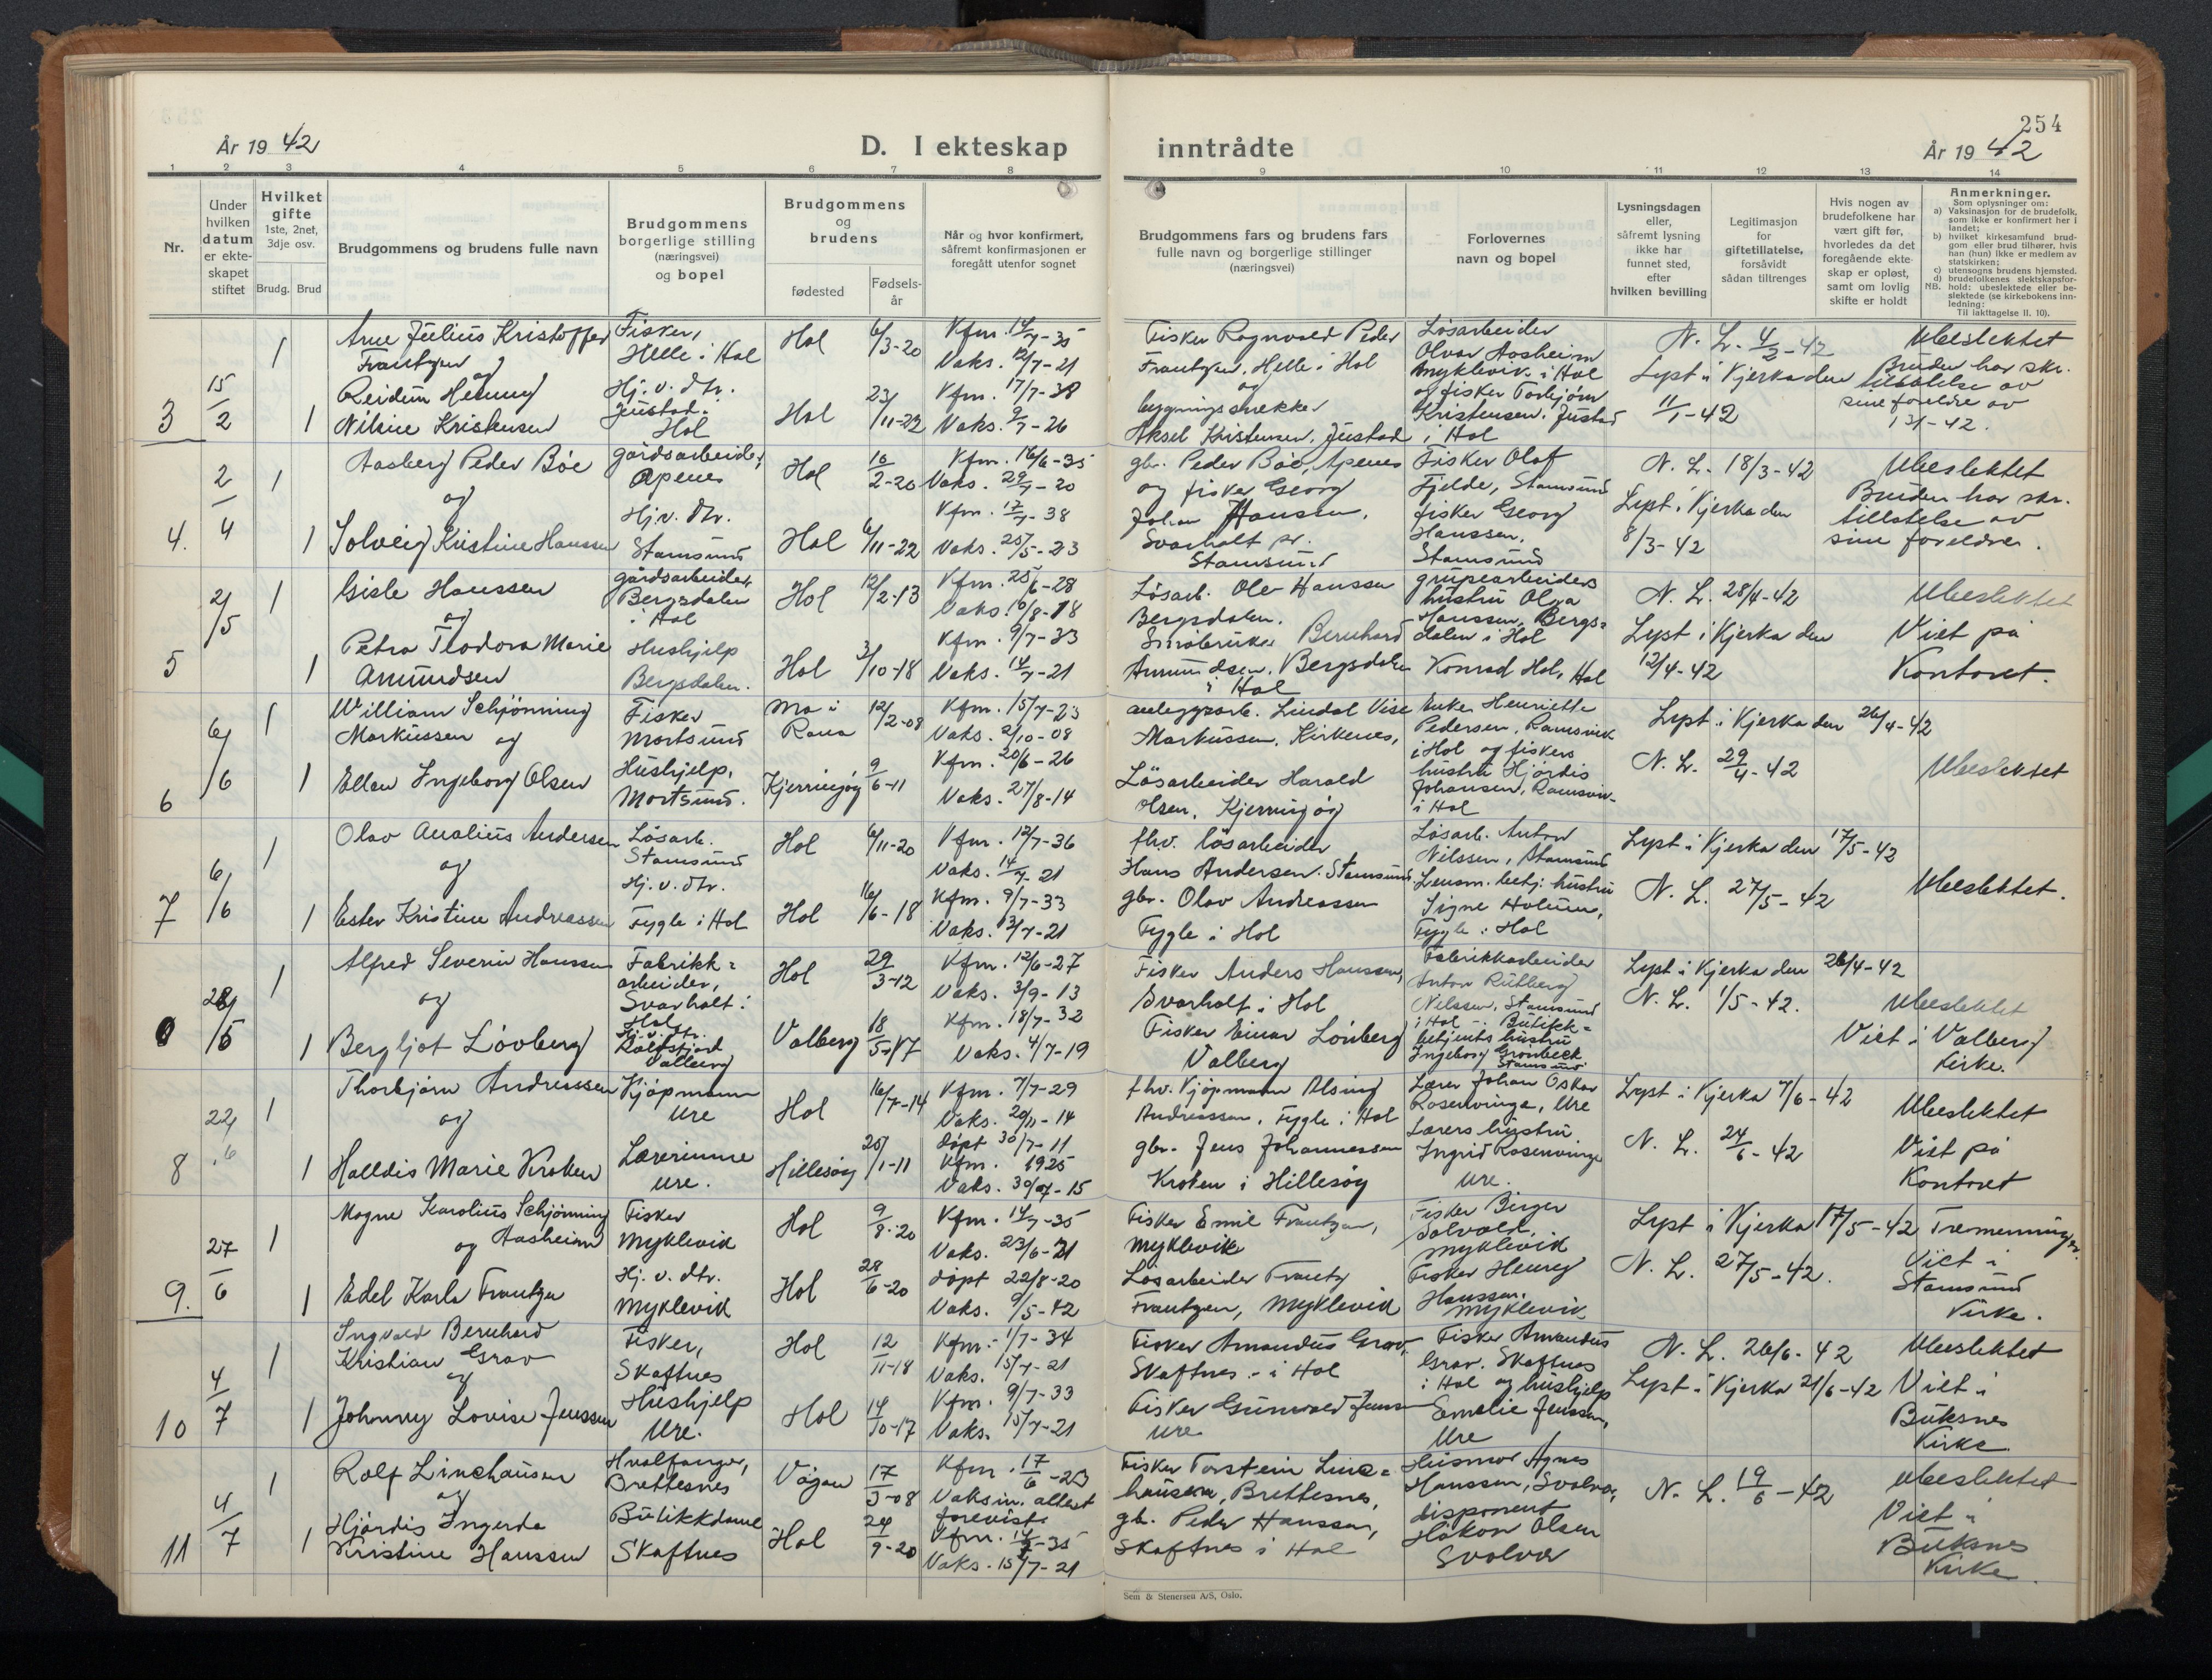 254
År 1942
D. I ekteskap
inntrådte
År 1942
1 2 3 4 5 6 7 8
9 10 11 12 13 14
Nr.
Under
hvilken
datum
er ekte-
skapet
stiftet
Hvilket
gifte
1ste, 2net,
3dje osv.
Brudg. Brud
Brudgommens og brudens fulle navn
Brudgommens
borgerlige stilling
(næringsvei)
og bopel
Brudgommens
og
brudens
fødested
Fødsels-
år
Når og hvor konfirmert,
såfremt konfirmasjonen er
foregått utenfor sognet
Brudgommens fars og brudens fars
fulle navn og borgerlige stillinger
(næringsvei)
Forlovernes
navn og bopel
Lysningsdagen
eller,
såfremt lysning
ikke har
funnet sted,
efter
hvilken bevilling
Legitimasjon
for
giftetillatelse,
forsåvidt
sådan tiltrenges
Hvis nogen av
brudefolkene har
vært gift før,
hvorledes da det
foregående ekte-
skap er opløst,
samt om lovlig
skifte er holdt
Anmerkninger.
Som oplysninger om:
a) Vaksinasjon for de brudefolk,
som ikke er konfirmert her i
landet;
b) hvilket kirkesamfund brud-
gom eller brud tilhører, hvis
han (hun) ikke er medlem av
statskirken;
c) utensogns brudens hjemsted.
d) brudefolkenes slektskapsfor-
NB. hold: ubeslektede eller be-
slektede (se kirkebokens inn-
ledning:
Til iakttagelse II. 10).
3
15/2
1
Arne Julius Kristoffer
Frantzen
og
1
Reidun Henny
Nilsine Kristensen
Fisker,
Helle i Hol
Hj. v. dtr.
Justad.
Hol
Hol 6/3-20
Hol 23/11-22
Kfm. 14/7-35
Vaks. 12/7-21
Kfm. 17/7-38
Vaks. 9/7-26
Fisker Rognvald Peder
Frantzen, Helle i Hol
og
bygningssnekker
Aksel Kristensen, Justad i Hol
Løsarbeider
Olvar Aasheim
Myklevik i Hol
og fisker Torbjörn
Kristensen, Justad
N. L. 4/2-42
Lyst i Kjerka den
11/1-42
Ubeslektet
Bruden har skr.
tillatelse av
sine foreldre av
4.
2/4
1
Aasberg Peder Böe
og
1
Solveig Kristine Hanssen
gårdsarbeider,
Apenes
Hj. v. dtr.
Stamsund
Hol 16/2-20
Hol 6/11-22
Kfm. 16/6-35
Vaks. 29/7-20
Kfm. 17/7-38
Vaks. 25/5-23
gbr. Peder Böe, Apenes
og fisker Georg
Johan Hanssen,
Svarholt pr.
Stamsund
Fisker Olaf
Fjelde, Stamsund
fisker Georg
Hanssen,
Stamsund
N. L. 18/3-42
Lyst i Kjerka den
8/3-42
Ubeslektet
Bruden har skr.
tillatelse av
sine foreldre.
5
2/5
1
Gisle Hanssen
og
1
Petra Teodora Marie
Amundsen
gårdsarbeider,
Bergsdalen
i Hol
Hushjelp
Bergsdalen.
Hol 12/2-13
Hol 3/10-18
Kfm. 25/6-28
Vaks. 10/8-18
Kfm. 9/7-33
Vaks. 14/7-21
Løsarb. Ole Hanssen
Bergsdalen.
Småbruker Bernhard
Amundsen, Bergsdalen
i Hol
grupearbeiders
hustru Olga
Hanssen, Bergs-
dalen i Hol
Konrad Hol, Hol
N. L. 28/4-42
Lyst i Kjerka den
12/4-42
Ubeslektet
Viet på
Kontoret.
6
6/6
1
William Schjönning
Markussen og
1
Ellen Ingeborg Olsen
Fisker
Mortsund
Hushjelp,
Mortsund.
Mo i
Rana 12/2-08
Kjerringöy 9/6-11
Kfm. 15/7-23
Vaks. 2/10-08
Kfm. 20/6-26
Vaks. 27/8-14
anleggsarb. Lindal Vise
Markussen, Kirkenes,
Løsarbeider Harald
Olsen, Kjerringöy
Enke Henriette
Pedersen, Ramsvik
i Hol og fiskers
hustru Hjördis
Johansen, Ramsvik
i Hol
Lyst i Kjerka den 26/4-42
N. L. 29/4-42
Ubeslektet
7
6/6
1
Olav Analius Andersen
og
1
Ester Kristine Andreassen
Løsarb.
Stamsund
Hj. v. dtr.
Fygle i Hol
Hol 6/11-20
Hol 16/6-18
Kfm. 12/7-36
Vaks. 14/7-21
Kfm. 9/7-33
Vaks. 13/7-21
fhv. løsarbeider
Hans Andersen. Stamsund.
gbr. Olav Andreassen
Fygle i Hol
Løsarb. Anton
Nilssen, Stamsund
Lensm. betj. hustru
Signe Holum,
Fygle i Hol
Lyst i Kjerka den 17/5-42
N. L. 27/5-42
Ubeslektet.
1
Alfred Severin Hanssen
og
1
Bergljot Lövberg
Fabrikk-
arbeider,
Svarholt i
Hol
Hj. v. dtr.
Rolfsfjord
Valberg
Hol 29/3-12
Valberg 18/5-17
Kfm. 12/6-27
Vaks. 3/9-13
Kfm. 18/7-32
Vaks. 4/7-19
Fisker Anders Hanssen,
Svarholt i Hol
Fisker Einar Lövberg
Valberg
Fabrikkarbeider
Anton Rudberg
Nilssen, Stamsund
i Hol - Butikk-
betjents hustru
Ingeborg Grönbeck
Stamsund
Lyst i Kjerka den 26/4-42
N. L. 1/5-42.
Ubeslektet
Viet i Valberg
Kirke.
8
22/6
1
Thorbjörn Andreassen
og
1
Halldis Marie Kroken
Kjöpmann
Ure
Lærerinne
Ure.
Hol 16/7-14
Hillesöy 25/1-11
Kfm. 7/7-29
Vaks. 20/11-14
döpt 30/7-11
Kfm. 1925
Vaks. 30/7-15
fhv. Kjöpmann Alsing
Andreassen, Fygle i Hol
gbr. Jens Johannessen
Kroken i Hillesöy
Lærer Johan Oskar
Rosenvinge, Ure
Lærers hustru
Ingrid Rosenvinge
Ure.
Lyst i Kjerka 7/6-42
N. L. 24/6-42
Ubeslektet
Viet på
Kontoret
9.
27/6
1
Mogne Karolius Schjönning
og Aasheim
1
Edel Karla Frantzen
Fisker
Myklevik
Hj. v. dtr.
Myklevik
Hol 9/8-20
Hol 28/6-20
Kfm. 14/7-35
Vaks. 23/6-21
döpt 22/8-20
Vaks. 9/5-42
Fisker Emil Frantzen,
Myklevik
Løsarbeider Frantz
Frantzen, Myklevik
Fisker Birger
Solvold,
Myklevik
Fisker Henry
Hanssen,
Myklevik
Lyst i Kjerka 17/5-42
N. L. 27/5-42.
Tremenninger.
Viet i
Stamsund
Kirke.
10
4/7
1
Ingvald Bernhard
Kristian Grav
og
1
Johnny Lovise Jenssen
Fisker,
Skaftnes
Hushjelp
Ure.
Hol 12/11-18
Hol 14/10-17
Kfm. 1/7-34
Vaks. 15/7-21
Kfm. 9/7-33
Vaks. 15/7-21
Fisker Amandus Grav,
Skaftnes - i Hol
Fisker Gunvald Jenssen
Ure
Fisker Amandus
Grav. Skaftnes
i Hol og hushjelp
Emelie Jenssen,
Ure
N. L. 26/6-42
Lyst i Kjerka 21/6-42
Ubeslektet
Viet i
Buksnes
Kirke
11
4/7
1
Rolf Linehausen
og
1
Hjördis Ingerda
Kristine Hanssen
Hvalfanger,
Brettesnes
Butikkdame
Skaftnes
Vågan 17/3-08
Hol 24/9-20
Kfm. 17/6-23
Vaksin. attest
forevist.
Kfm. 14/7-35
Vaks. 15/7-21
Fisker Torstein Line-
hausen, Brettesnes,
gb. Peder Hanssen,
Skaftnes i Hol
Husmor Agnes
Hanssen, Svolvær,
disponent
Håkon Olsen
Svolvær
N. L. 19/6-42
Ubeslektet
Viet i
Buksnes
Kirke.
Sem & Stenersen A/S, Oslo.